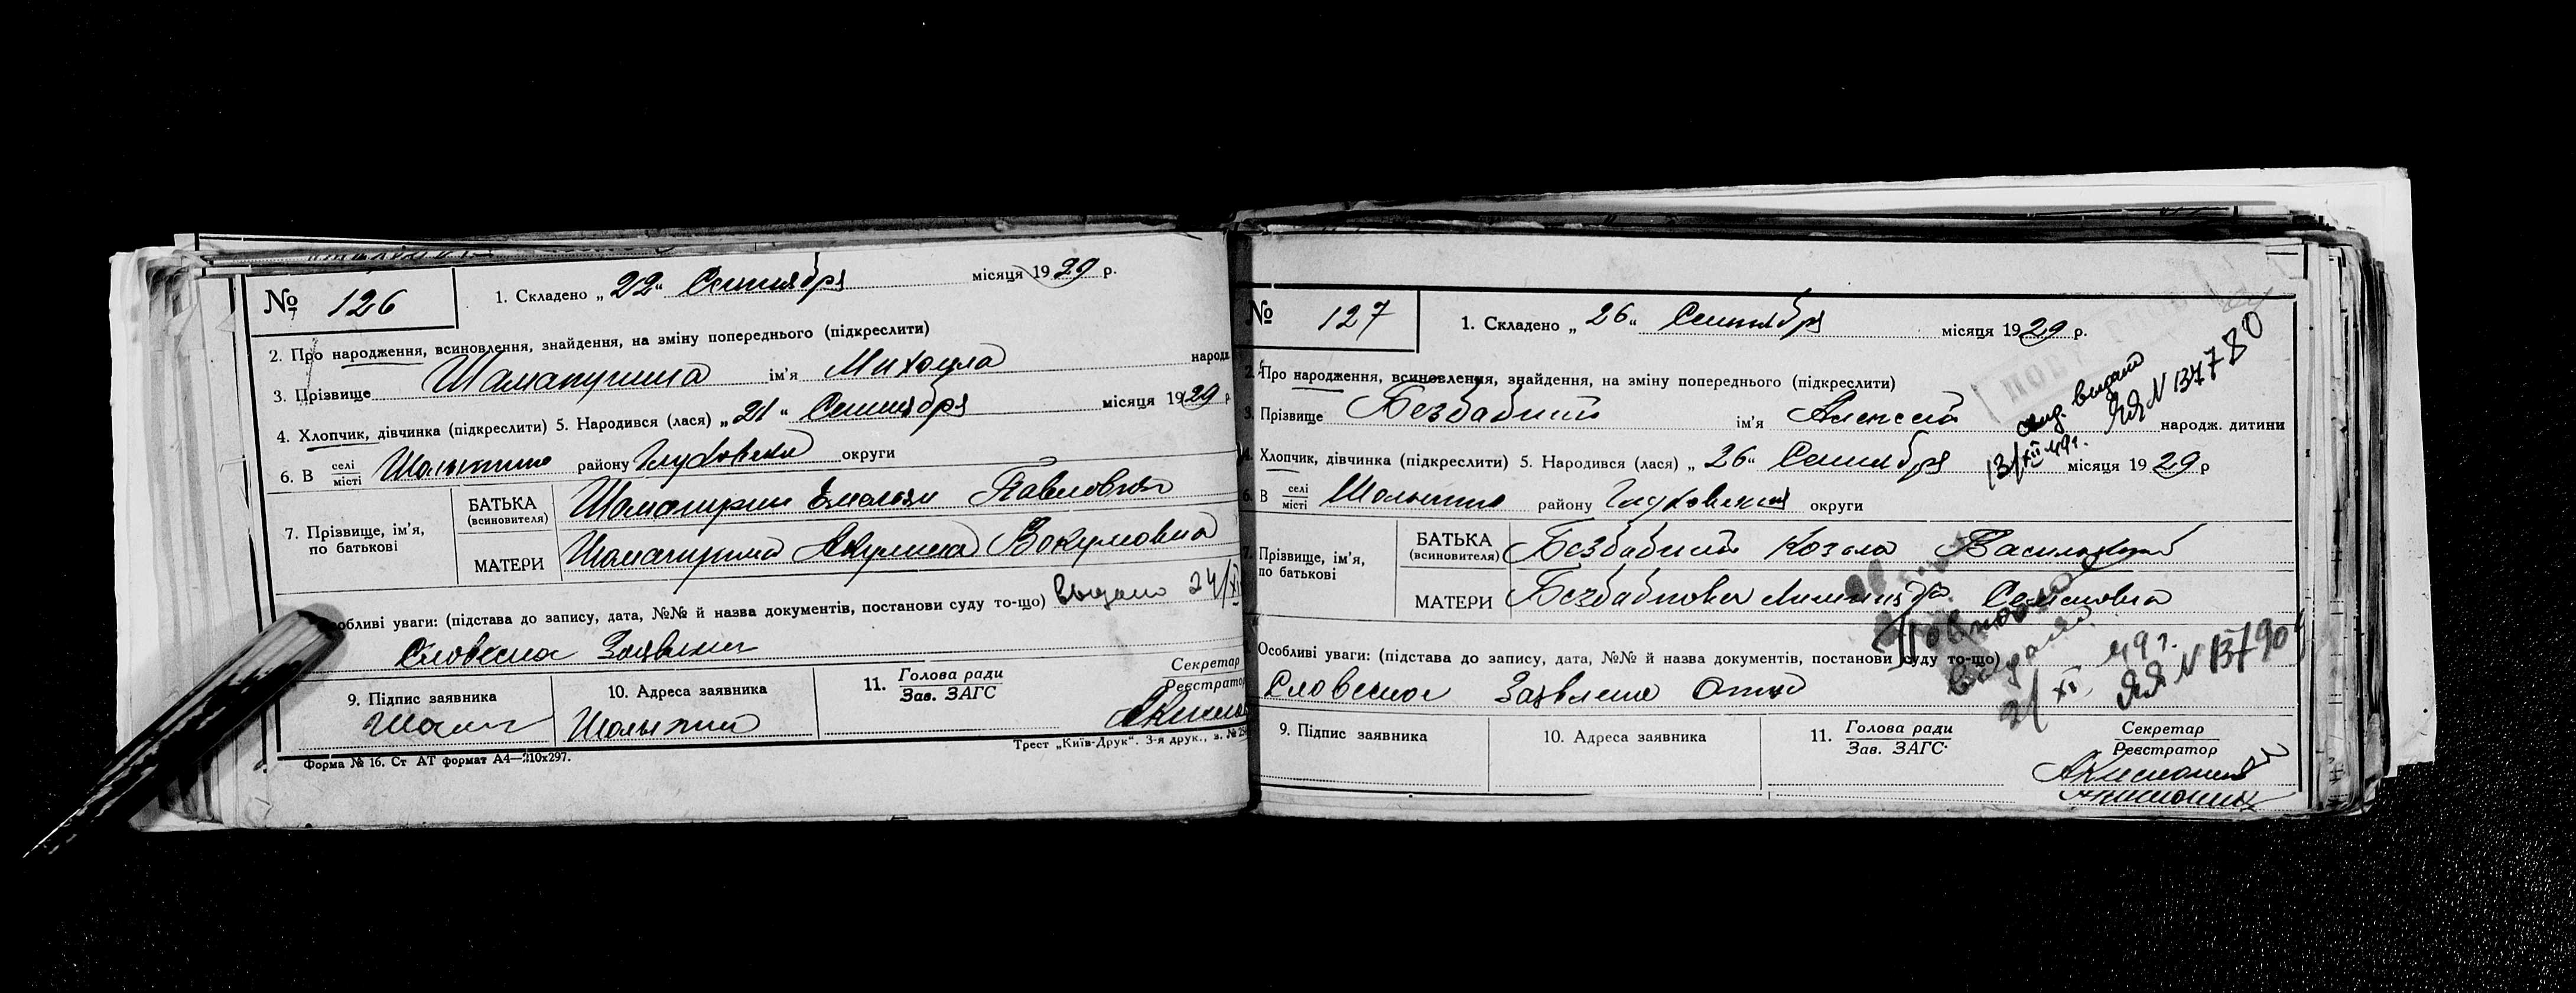 № 126
1. Складено „ 22 “ Сентября місяця 1929 р.
2. Про народження, всиновлення, знайдення, на зміну попереднього (підкреслити)
3. Прізвище ім'я Михоила народж
4. Хлопчик, дівчинка (підкреслити) 5. Народився (лася) „ 21 “ Сентября місяця 1929 р
6. В селі місті Шалыгино району Глуховский округи
7. Прізвище, ім'я, по батькові
БАТЬКА (всиновителя) Емельян Павлович
МАТЕРИ Акулина Вакумовна
Особливі уваги: (підстава до запису, дата, №№ й назва документів, постанови суду то-що) Выдано 24/XI
Словесна Заявлени
9. Підпис заявника 10. Адреса заявника 11. Голова ради Зав. ЗАГС Секретар Реєстратор
Шалыгин
Форма № 16. Ст АТ формат А4—210х297. Трест „Київ-Друк“. 3-я друк., з. №
№ 127
1. Складено „ 26 “ Сентября місяця 1929 р.
2. Про народження, всиновлення, знайдення, на зміну попереднього (підкреслити)
3. Прізвище Безбабний ім'я Алексей народж. дитини
свид. выдано
ЯЯ N 137780
13/XII 49г.
4. Хлопчик, дівчинка (підкреслити) 5. Народився (лася) „ 26 “ Сентября місяця 1929 р
6. В селі місті Шалыгино району Глуховский округи
7. Прізвище, ім'я, по батькові
БАТЬКА (всиновителя) Безбабний Козьма Васильевич
МАТЕРИ Безбабнова Семеновна
Повторно выдано
21/XI 49г.
ЯЯ N
Особливі уваги: (підстава до запису, дата, №№ й назва документів, постанови суду то-що)
Словесное Заявление Отца
9. Підпис заявника 10. Адреса заявника 11. Голова ради Зав. ЗАГС Секретар Реєстратор